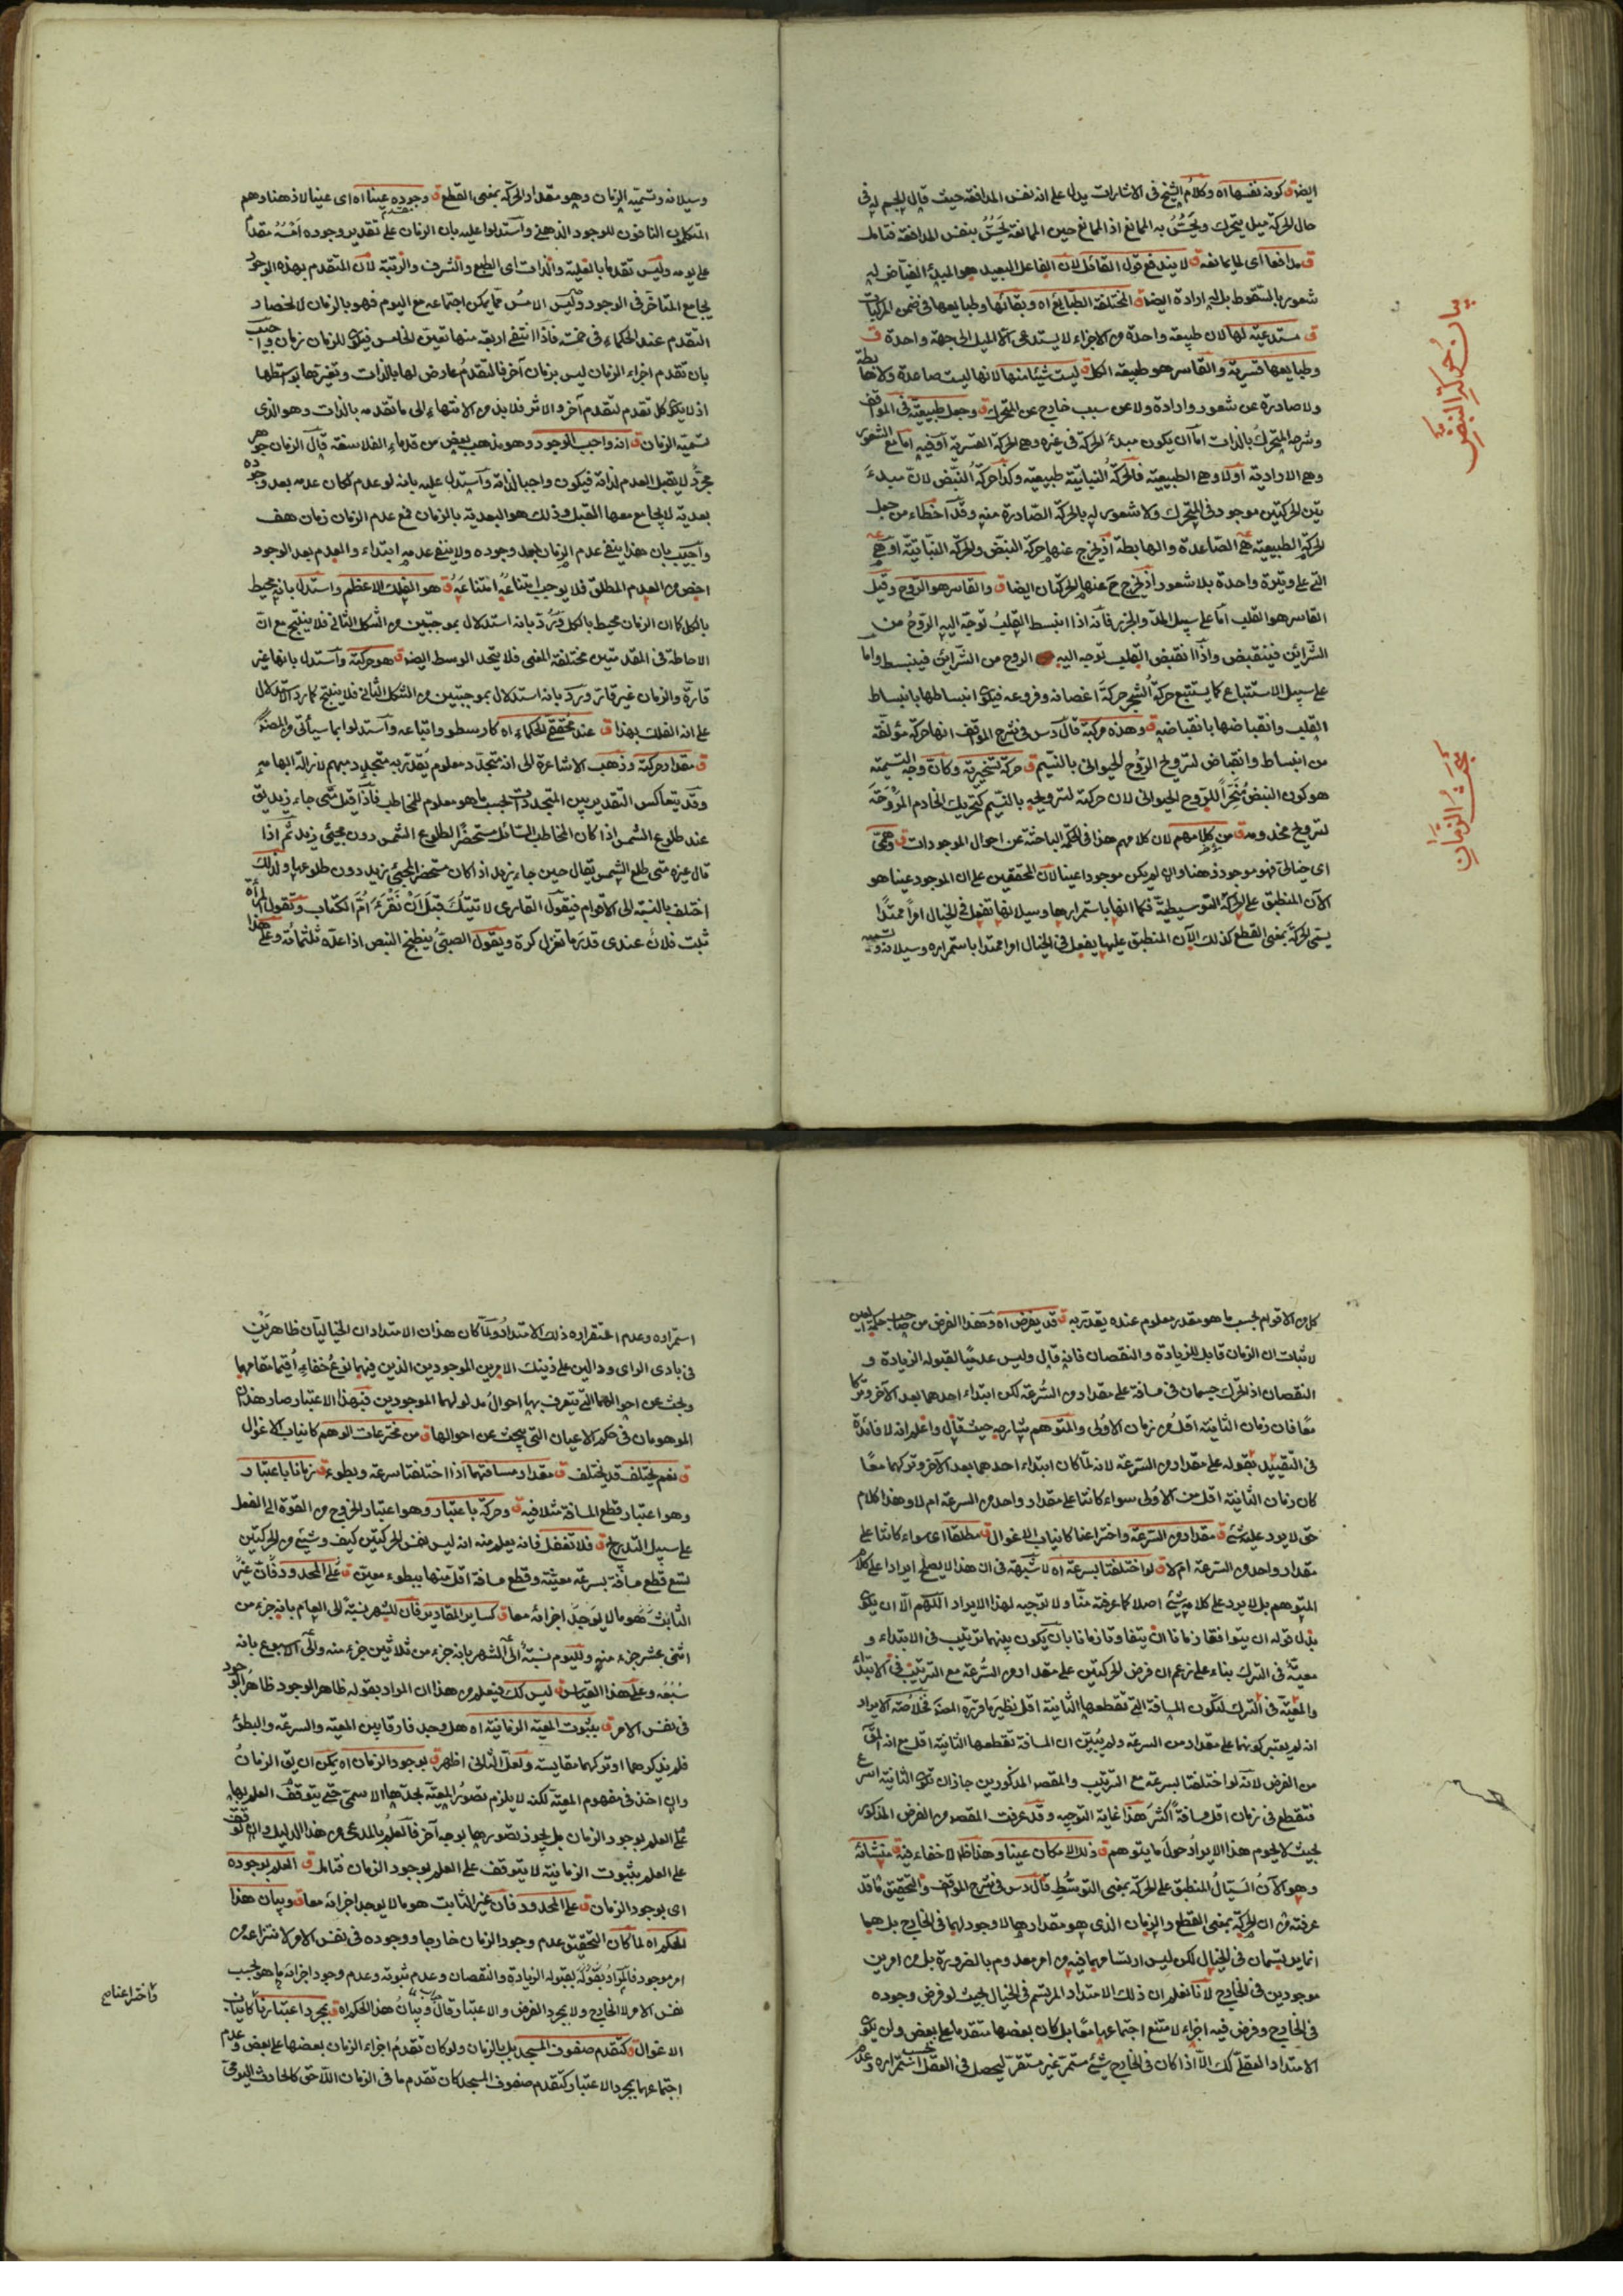 ايضا ق كونه نفسها اه وكلام الشيخ فى الاشارات يدل على انه نفس المدافعة حيث قال الجسم له فى
حال الحركة ميل يتحرك ويحس به الممانع اذ الممانع حين الممانعة يحس بنفس المدافعة فتامل
ق مدافعا اى لما يمانعه ق لا يندفع قول القائل لان الفاعل البعيد هو المبدأ الفياض له
شعور بالسقوط بل له ارادة ايضا ق المختلفة الطبايع اه وبقائها وطبايعها فى ضمن المركبات
ق مستدعية لها لان طبيعة واحدة من الاجزاء لا يستدعى الا الميل الى جهة واحدة ق
وطبايعها قسرية والقاسر هو طبيعة الكل ق ليست شيئا منها لانها ليست صاعدة ولا هابطة
ولا صادرة عن شعور وارادة ولا عن سبب خارج عن المتحرك ق وجعل طبيعية فى المواقف
وشرحه المتحرك بالذات اما ان يكون مبدء الحركة فى غيره وهى الحركة القسرية او فيه اما مع الشعور
وهى الارادية او لا وهى الطبيعية فالحركة النباتية طبيعية وكذا حركة النبض لان مبدء
تين الحركتين موجود فى المتحرك ولا شعور له بالحركة الصادرة منه وقد اخطاء من جعل
الحركة الطبيعية هى الصاعدة والهابطة اذ يخرج عنها حركة النبض والحركة النباتية او هى
التى على وتيرة واحدة بلا شعور اذ يخرج ح عنها الحركتان ايضا ق والقاسر هو الروح وقيل
القاسر هو القلب اما على سبيل المد والجزر فانه اذا انبسط القلب توجه اليه الروح من
الشرائن فينقبض واذا انقبض القلب توجه اليه الروح من الشرائن فينبسط واما
على سبيل الاستتباع كما يستتبع حركة الشجر حركة اغصانه وفروعه فيكون انبساطها بانبساط
القلب وانقباضها بانقباضه ق وهذه مركبة قال دس فى شرح المواقف انها حركة مؤلفة
من انبساط وانقباض لترويح الروح الحيوانى بالنسيم ق حركة تسخيرية وكان وجه التسمية
هو كون النبض مسخرا للروح الحيوانى لان حركته لترويحه بالنسيم كتحريك الخادم المروحة
لترويح مخدومه ق من كلامهم لان كلامهم هذا فى الحكمة الباحثة عن احوال الموجودات ق وهمى
اى خيالى فهو موجود ذهنا وان لم يكن موجودا عينا لان المحققين على ان الموجود عينا هو
الآن المنطبق على الحركة التوسطية فكما انها باستمرارها وسيلانها تفعل فى الخيال امرا ممتدا
يسمى الحركة بمعنى القطع كذلك الآن المنطبق عليها يفعل فى الخيال امرا ممتدا باستمراره وسيلانه ونسميه
بيان حركة النبض
بحث الزمان
وسيلانه ونسميه الزمان وهو مقدار الحركة بمعنى القطع ق وجوده عينا اه اى عينا لا ذهنا وهم
المتكلمون النافون للوجود الذهنى واستدلوا عليه بان الزمان على تقدير وجوده امسه مقدم
على يومه وليس تقدما بالعلية والذات اى الطبع والشرف والرتبة لان المتقدم بهذه الوجوه
يجامع المتاخر فى الوجود وليس الامس مما يمكن اجتماعه مع اليوم فهو بالزمان لانحصار
التقدم عند الحكماء فى خمسة فاذا انتفى اربعة منها تعين الخامس فيكون للزمان زمان واجيب
بان تقدم اجزاء الزمان ليس بزمان آخر فالتقدم عارض لها بالذات ولغيرها بواسطتها
اذ لا يكون كل تقدم لتقدم آخر والا تس فلا بد من الانتهاء الى ما تقدمه بالذات وهو الذى
نسميه الزمان ق انه واجب الوجود وهو مذهب بعض من قدماء الفلاسفة قال الزمان جوهر
مجرد لا يقبل العدم لذاته فيكون واجبا لذاته واستدل عليه بانه لو عدم لكان عدمه بعد وجوده
بعدية لا يجامع معها القبل وذلك هو البعدية بالزمان فمع عدم الزمان زمان هف
واجيب بان هذا ينفى عدم الزمان بعد وجوده ولا ينفى عدمه ابتداء والعدم بعد الوجود
اخص من العدم المطلق فلا يوجب امتناعه امتناعه ق هو الفلك الاعظم واستدل بانه محيط
بالكل كما ان الزمان محيط بالكل ورد بانه استدلال بموجبتين من الشكل الثانى فلا ينتج مع ان
الاحاطة فى المقدمتين مختلفة المعنى فلا يتحد الوسط ايضا ق هو حركته واستدل بانها غير
قارة والزمان غير قار ورد بانه استدلال بموجبتين من الشكل الثانى فلا ينتج كما رد الاستدلال
على انه الفلك بهذا ق عند محققى الحكماء اه كارسطو واتباعه واستدلوا بما سيأتى من المص
ق مقدار حركته وذهب الاشاعرة الى انه متجدد معلوم يقدر به متجدد مبهم لازالة ابهامه
وقد يتعاكس التقدير بين المتجددات بحسب ما هو معلوم للمخاطب فاذا قيل متى جاء زيد يق
عند طلوع الشمس اذا كان المخاطب السائل مستحضرا لطلوع الشمس دون مجيئ زيد ثم اذا
قال غيره متى طلع الشمس يقال حين جاء زيد اذا كان مستحضر المجيئ زيد دون طلوعها ولذلك
اختلف بالنسبة الى الاقوام فيقول القارى لا تيتك قبل ان تقرء ام الكتاب وتقول المرأة
لبث فلان عندى قدر ما تغزل كرة ويقول الصبى ينطبخ البيض اذا عد ثلثمائة وعلى هذا
كل من الاقوام بحسب ما هو مقدر معلوم عنده يقدر به ق قد يفرض اه وهذا الفرض من صاحب حكمة العين
لاثبات ان الزمان قابل للزيادة والنقصان فانه قال وليس عدميا لقبوله الزيادة و
النقصان اذ لو تحرك جسمان فى مسافة على مقدار من السرعة لكن ابتداء احدهما بعد الآخر وتركا
معا فان زمان الثانية اقل من زمان الاولى والمتوهم شارحه حيث قال واعلم انه لا فائدة
فى التقييد بقوله على مقدار من السرعة لانه لما كان ابتداء احدهما بعد الآخر وتركهما معا
كان زمان الثانية اقل من الاولى سواء كانتا على مقدار واحد من السرعة ام لا وهذا كلام
حق لا يرد عليه شئ ق مقدار من السرعة واختراعنا كانياب الاغوال ق مطلقا اى سواء كانتا على
مقدار واحد من السرعة ام لا ق لو اختلفتا بسرعة اه لا شبهة فى ان هذا لا يصلح ايرادا على كلام
المتوهم بل لا يرد على كلامه شئ اصلا كما عرفته منا ولا توجيه لهذا الايراد اللهم الا ان يكون
بدل قوله ان يتوافقا زمانا ان يتفاوتا زمانا بان يكون بينهما ترتيب فى الابتداء و
معية فى الترك بناء على زعم ان فرض الحركتين على مقدار من السرعة مع الترتيب فى الابتداء
والمعية فى الترك لتكون المسافة التى تقطعها الثانية اقل نظير ما قرره المص فخلاصة الايراد
انه لم يعتبر كونهما على مقدار من السرعة ولم يتبين ان المسافة تقطعها الثانية اقل مع انه المق
من الفرض لانه لو اختلفتا بسرعة مع الترتيب والمقصد المذكورين جاز ان تكون الثانية اسرع
فتقطع فى زمان اقل مسافة اكثر هذا غاية التوجيه وقد عرفت المقصد من الفرض المذكور
بحيث لا يحوم هذا الايراد حول ما يتوهم ق ذلك الامكان عينا وهذا ظ لا خفاء فيه ق منشائه
وهو الآن السيال المنطبق على الحركة بمعنى التوسط قال دس فى شرح المواقف والتحقيق ما قد
عرفته من ان الحركة بمعنى القطع والزمان الذى هو مقدارها لا وجود لهما فى الخارج بل هما
انما يرتسمان فى الخيال لكن ليس ارتسامهما فيه من امر معدوم بالضرورة بل من امرين
موجودين فى الخارج لانا نعلم ان ذلك الامتداد المرتسم فى الخيال بحيث لو فرض وجوده
فى الخارج وفرض فيه اجزاء لامتنع اجتماعها معا بل كان بعضها متقدما على بعض ولن يكون
الامتداد العقلى كك الا اذا كان فى الخارج شئ مستمر غير مستقر يحصل فى العقل بحسب استمراره وعدم
استمراره وعدم استقراره ذلك الامتداد ولما كان هذان الامتدادان الخياليان ظاهرين
فى بادى الراى ودالين على ذينك الامرين الموجودين الذين فيهما نوع خفاء اقيما مقامهما
وبحث عن احوالهما التى يتعرف بها احوال مدلولهما الموجودين فبهذا الاعتبار صار هذان
الموهومان فى حكم الاعيان التى يبحث عن احوالها ق من مخترعات الوهم كانياب الاغوال
ق نعم يختلف قد يختلف ق مقدار مسافتهما اذا اختلفتا سرعة وبطوء ق زمانا باعتبار
وهو اعتبار قطع المسافة مثلا فيه ق وحركة باعتبار وهو اعتبار الخروج من القوة الى الفعل
على سبيل التدريج ق فلا تغفل فانه يعلم منه انه ليس نفس الحركتين كيف وشئ من الحركتين
لتسع قطع مسافة بسرعة معينة وقطع مسافة اقل منها ببطوء معين ق على المحدود فان غير
الثابت هو ما لا يوجد اجزائه معا ق كساير المقادير فان للشهر نسبة الى العام بانه جزء من
اثنى عشر جزء منه ولليوم نسبة الى الشهر بانه جزء من ثلاثين جزء منه والى الاسبوع بانه
سبعه وعلى هذا القياس ق ليس كك فيعلم من هذا ان المراد بقوله ظاهر الوجود ظاهر الوجود
فى نفس الامر ق بثبوت المعية الزمانية اه هل وجد فارقا بين المعية والسرعة والبطؤ
فلم يذكروها او تركهما مقايسة ولعل الثانى اظهر ق بوجود الزمان اه يمكن ان يق الزمان
وان اخذ فى مفهوم المعية لكنه لا يلزم تصور المعية بحدها الاسمى حتى يتوقف العلم بها
على العلم بوجود الزمان بل يجوز تصورها بوجه آخر فالعلم بالمدعى من هذا الدليل وان توقف
على العلم بثبوت الزمانية لا يتوقف على العلم بوجود الزمان فتامل ق العلم بوجوده
اى بوجود الزمان ق على المحدود فان غير الثابت هو ما لا يوجد اجزائه معا ق وبيان هذا
الحكم اه لما كان التحقيق عدم وجود الزمان خارجا ووجوده فى نفس الامر لانتزاعه من
امر موجود فالمراد بقوله بقبوله الزيادة والنقصان وعدم ثبوته وعدم وجود اجزائه ما هو بحسب
نفس الامر لا الخارج ولا بمجرد الفرض والاعتبار قال وبيان هذا الحكم اه ق بمجرد اعتبارنا كانياب
الاغوال ق كتقدم صفوف المسجد بل بالزمان ولو كان تقدم اجزاء الزمان بعضها على بعض وعدم
اجتماعها بمجرد الاعتبار كتقدم صفوف المسجد كان تقدم ما فى الزمان اللاحق كالحادث اليومى
واختراعنا صح